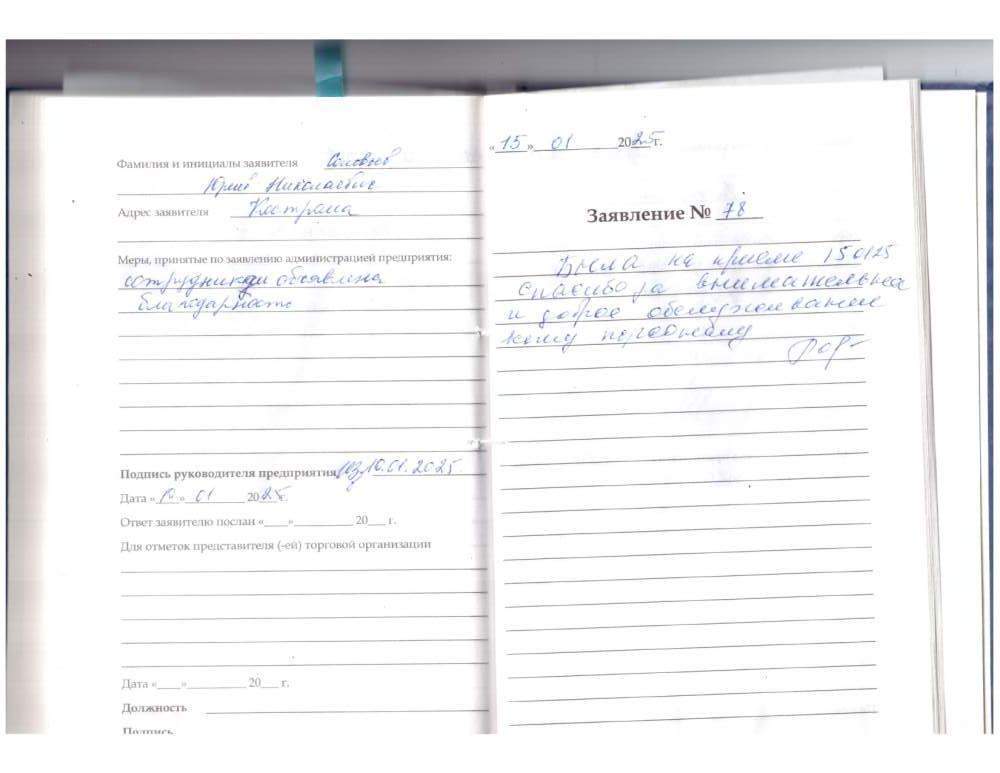 Фамилия и инициалы заявителя Соловьев
Юрий Николаевич
Адрес заявителя Кострома
Меры, принятые по заявлению администрацией предприятия:
сотрудникам объявлена
благодарность
Подпись руководителя предприятия 10.01.2025
Дата «10» 01 2025г.
Ответ заявителю послан «____»__________ 20___ г.
Для отметок представителя (-ей) торговой организации
Дата «____»__________ 20___ г.
Должность
Подпись
«15» 01 2025г.
Заявление № 78
Была на приеме 150125
спасибо за внимательное
и доброе обслуживание
персоналу